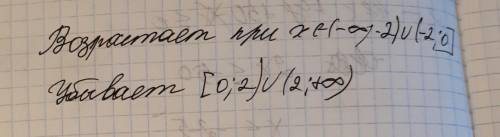 Возрастает при x∈(-∞;-2)∪(-2;0]
Убывает [0;2)∪(2;+∞)